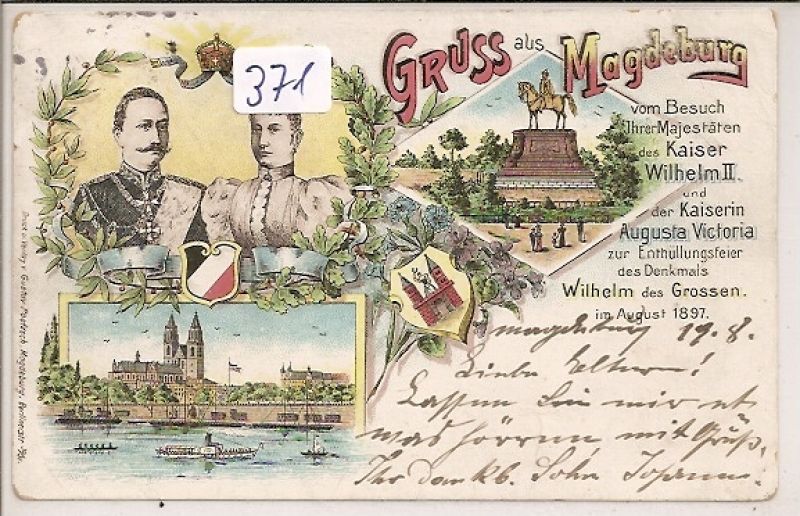 371
Gruss aus Magdeburg
vom Besuch
Ihrer Majestäten
des Kaiser
Wilhelm II.
und
der Kaiserin
Augusta Victoria
zur Enthüllungsfeier
des Denkmals
Wilhelm des Grossen.
im August 1897.
Magdeburg 19. 8.
Liebe Eltern!
Lassen Sie mir
was hören mit Gruß
Ihr dankb. Sohn
Druck u. Verlag v. Gustav Poetzsch Magdeburg,